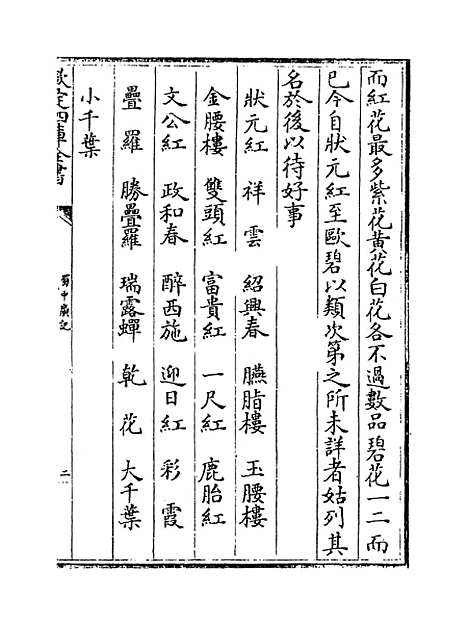 而紅花最多紫花黄花白花各不過數品碧花一二而
已今自狀元紅至歐碧以類次第之所未詳者姑列其
名於後以待好事
狀元紅 祥雲 紹興春 臙脂樓 玉腰樓
金腰樓 雙頭紅 富貴紅 一尺紅 鹿胎紅
文公紅 政和春 醉西施 迎日紅 彩霞
疊羅 勝疊羅 瑞露蟬 乾花 大千葉
小千葉
欽定四庫全書
蜀中廣記
二